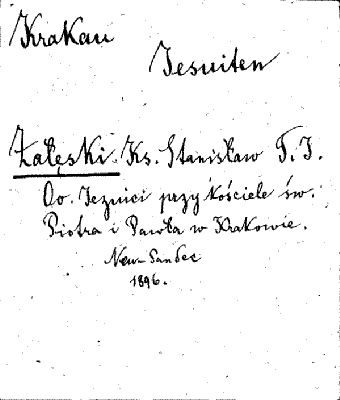 Krakau
Jesuiten
Załęski Ks. Stanisław T. J.
OO. Jezuici przy kościele św.
Piotra i Pawła w Krakowie.
New-Sandec
1896.